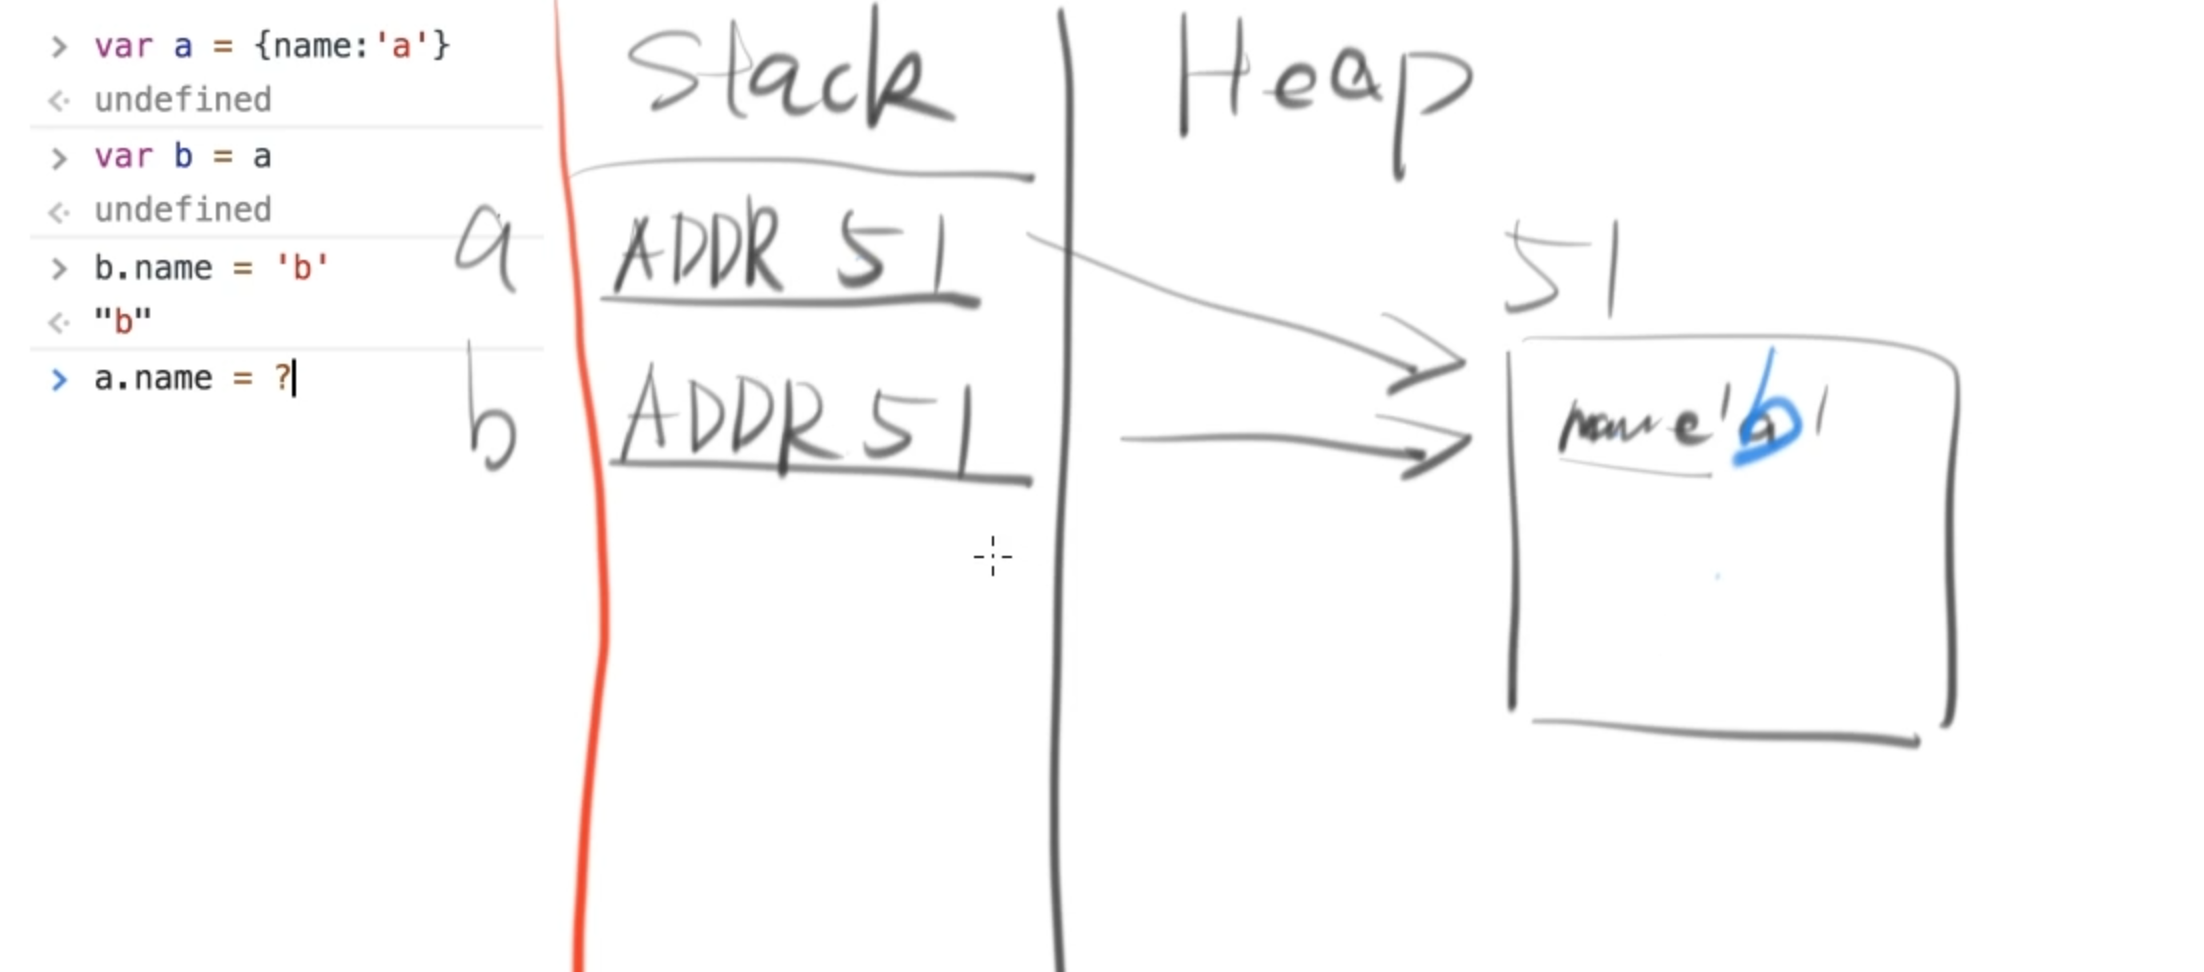 > var a = {name:'a'}
<· undefined
> var b = a
<· undefined
> b.name = 'b'
<· "b"
> a.name = ?
Stack
a ADDR 51
b ADDR 51
Heap
51
name 'b'